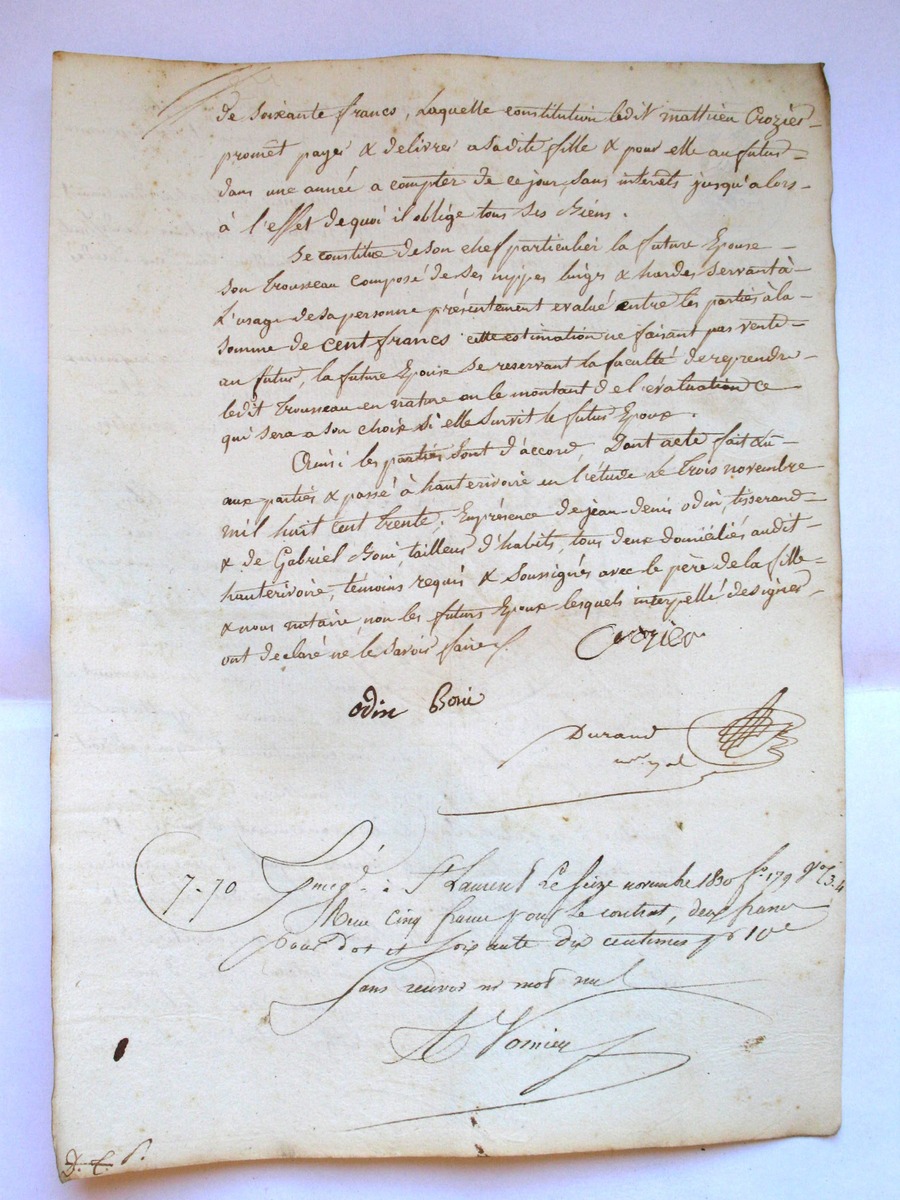 de soixante francs, Laquelle constitution ledit mathieu Crozier
promêt payer & delivrer a sadite fille & pour elle au futur
dans une année a compter de ce jour, sans interêts jusqu'a lors
à l'effet de quoi il oblige tous ses Biens.
Se constitue de son chef particulier la future Epouse
son trousseau composé de ses nippes linges & hardes servant à
L'usage de sa personne présentement evalué entre les parties à la
somme de cent francs cette estimation ne faisant pas vente
au futur, la future Epouse se reservant la faculté de reprendre
ledit trousseau en nature ou le montant de l'evaluation ce
qui sera a son choix si elle survit le futur Epoux.
Ainsi les parties sont d'accord, Dont acte fait
aux parties & passé à hauterivoire en l'étude Le trois novembre
mil huit cent trente, En présence de jean-denis odin, tisserand
& de Gabriel Boni, tailleur d'habits, tous deux domiciliés audit
hauterivoire, témoins requis & soussignés avec le père de la fille
& nous notaire, non les futurs Epoux lesquels interpellé de signer
ont declaré ne le savoir faire.
Crozier
odin Boni
Durand
7-70 à St Laurent Le seize novembre 1830 fo 179
Reçu cinq francs pour le contrat, deux francs
pour dot et soixante dix centimes pr 10e
Sans renvoi ni mot nul
D. E. P.